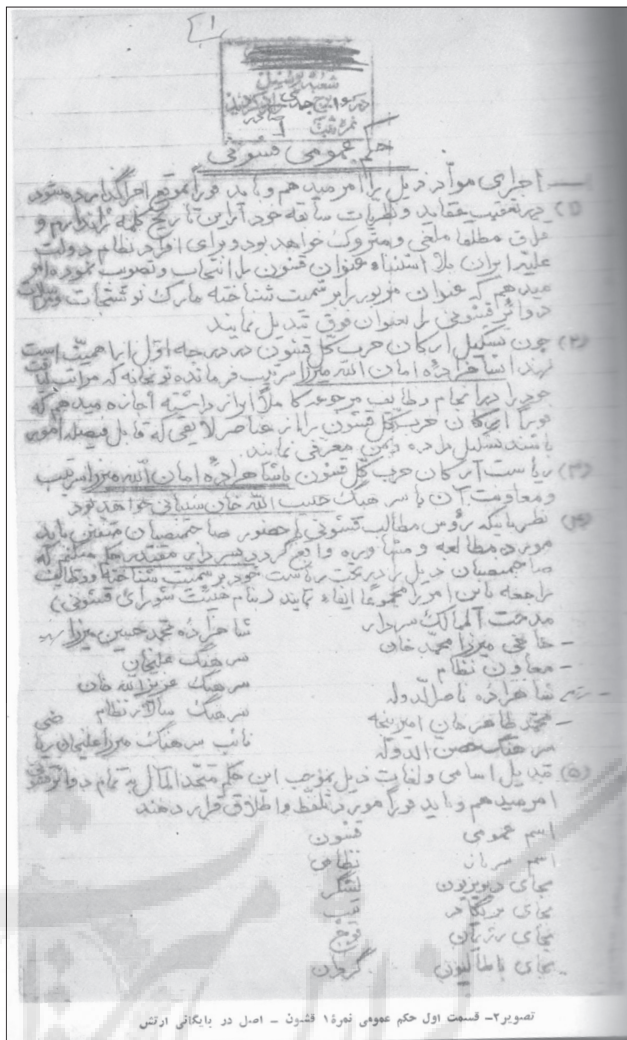 ۱
شعبه پرسنل
نمره ثبت
حکم عمومی قشونی
اجرای مواد ذیل را امر میدهم و باید فوراً بموقع اجرا گذارده شود
۱) در تعقیب عقاید و نظریات سابقه خود از این تاریخ کلمه ژاندارم و
قزاق مطلقاً ملغی و متروک خواهد بود و برای افراد نظام دولت
علیه ایران بلا استثناء عنوان قشون را انتخاب و تصویب نموده امر
میدهم که عنوان مزبور را برسمیت شناخته مارک نوشتجات و مراسلات
دوائر قشونی را بعنوان فوق تبدیل نمایند
۲) چون تشکیل ارکان حرب کل قشون در درجه اول از اهمیت است
لهذا شاهزاده امان الله میرزا سرتیپ فرمانده توپخانه که مراتب لیاقت
خود را در انجام وظایف مرجوعه کاملاً ابراز داشته اجازه میدهم که
فوراً ارکان حرب کل قشون را از عناصر لایقی که قابل فیصله امور
باشند تشکیل داده بمن معرفی نمایند
۳) ریاست ارکان حرب کل قشون با شاهزاده امان الله میرزا سرتیپ
و معاونت آن با سرهنگ حبیب الله خان شیبانی خواهد بود
۴) نظر باینکه رؤس مطالب قشونی با حضور صاحبمنصبان متفنن باید
مورد مطالعه و مشاوره واقع گردد سردار مقتدر
صاحبمنصبان ذیل را در تحت ریاست خود برسمیت شناخته وظائف
راجعه باین امور را مجموعاً ایفاء نمایند (بنام هیئت شورای قشونی)
مدحت الممالک سردار شاهزاده محمد حسین میرزا
- حاجی میرزا محمد خان سرهنگ علیخان
- معاون نظام سرهنگ عزیز الله خان
شاهزاده ناصرالدوله سرهنگ سالار نظام
- محمد طاهر خان امیر پنجه نائب سرهنگ میرزا علیخان ریاضی
سرهنگ حصن الدوله
۵) تبدیل اسامی و لغات ذیل بموجب این حکم متحدالمآل به تمام دوائر قشونی
امر میدهم و باید فوراً مورد تلفظ و اطلاق قرار دهند
اسم عمومی قشون
اسم سرباز نظامی
بجای دیویزیون لشکر
بجای بریگاد تیپ
بجای رژیمان فوج
بجای باطالیون گردان
تصویر۲- قسمت اول حکم عمومی نمرهٔ ۱ قشون - اصل در بایگانی ارتش